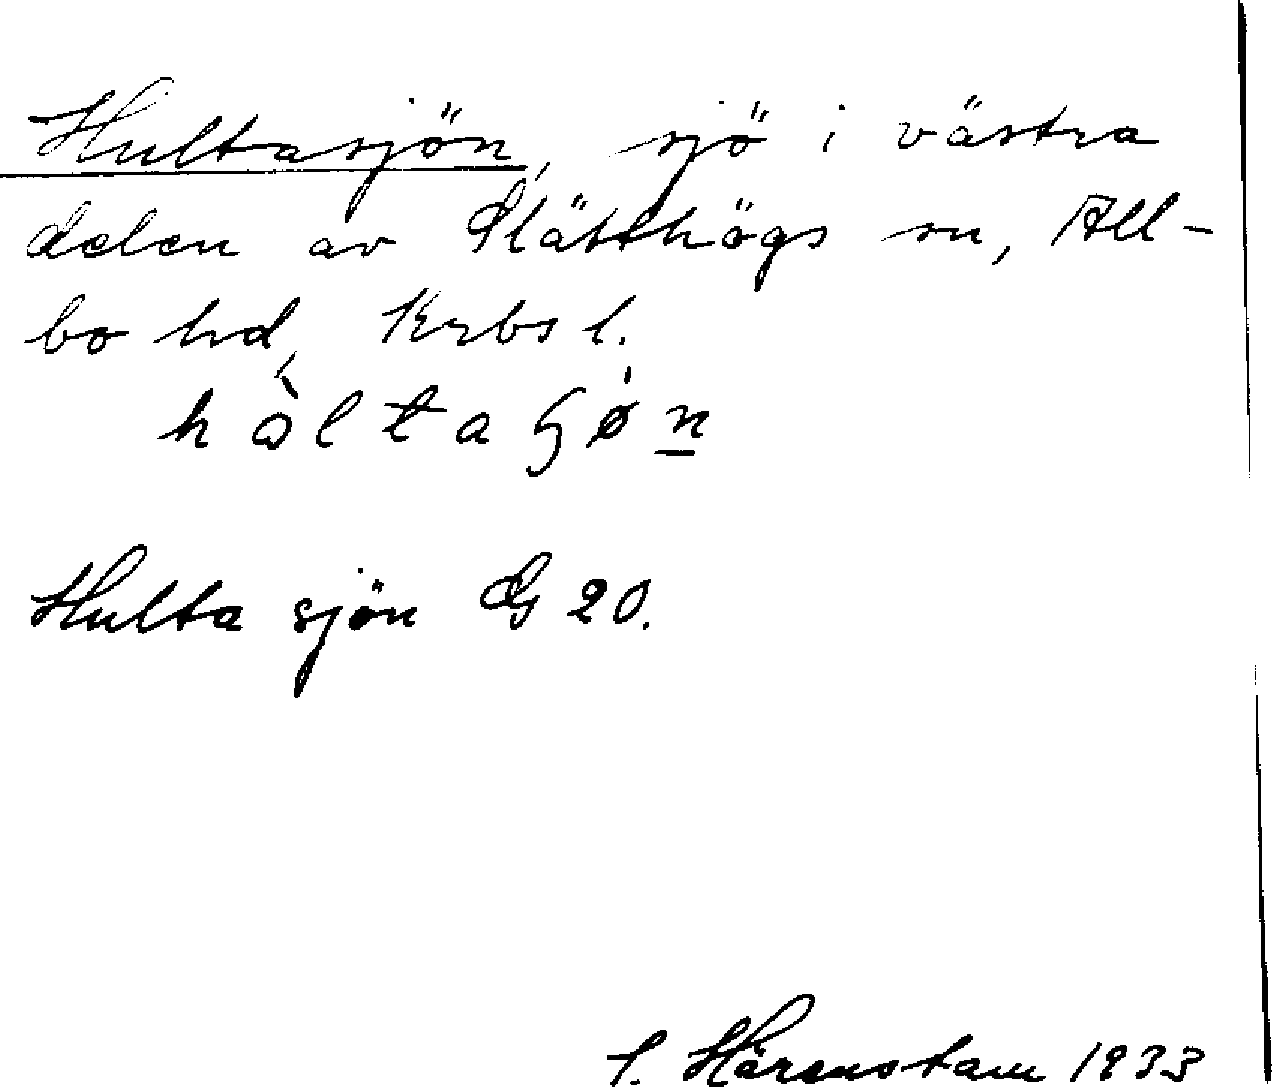 Hultasjön, sjö i västra
delen av Slätthögs sn, All-
bo hd, Krbs l.
hòltaɧø̀n
Hulta sjön G 20.
S. Härenstam 1933